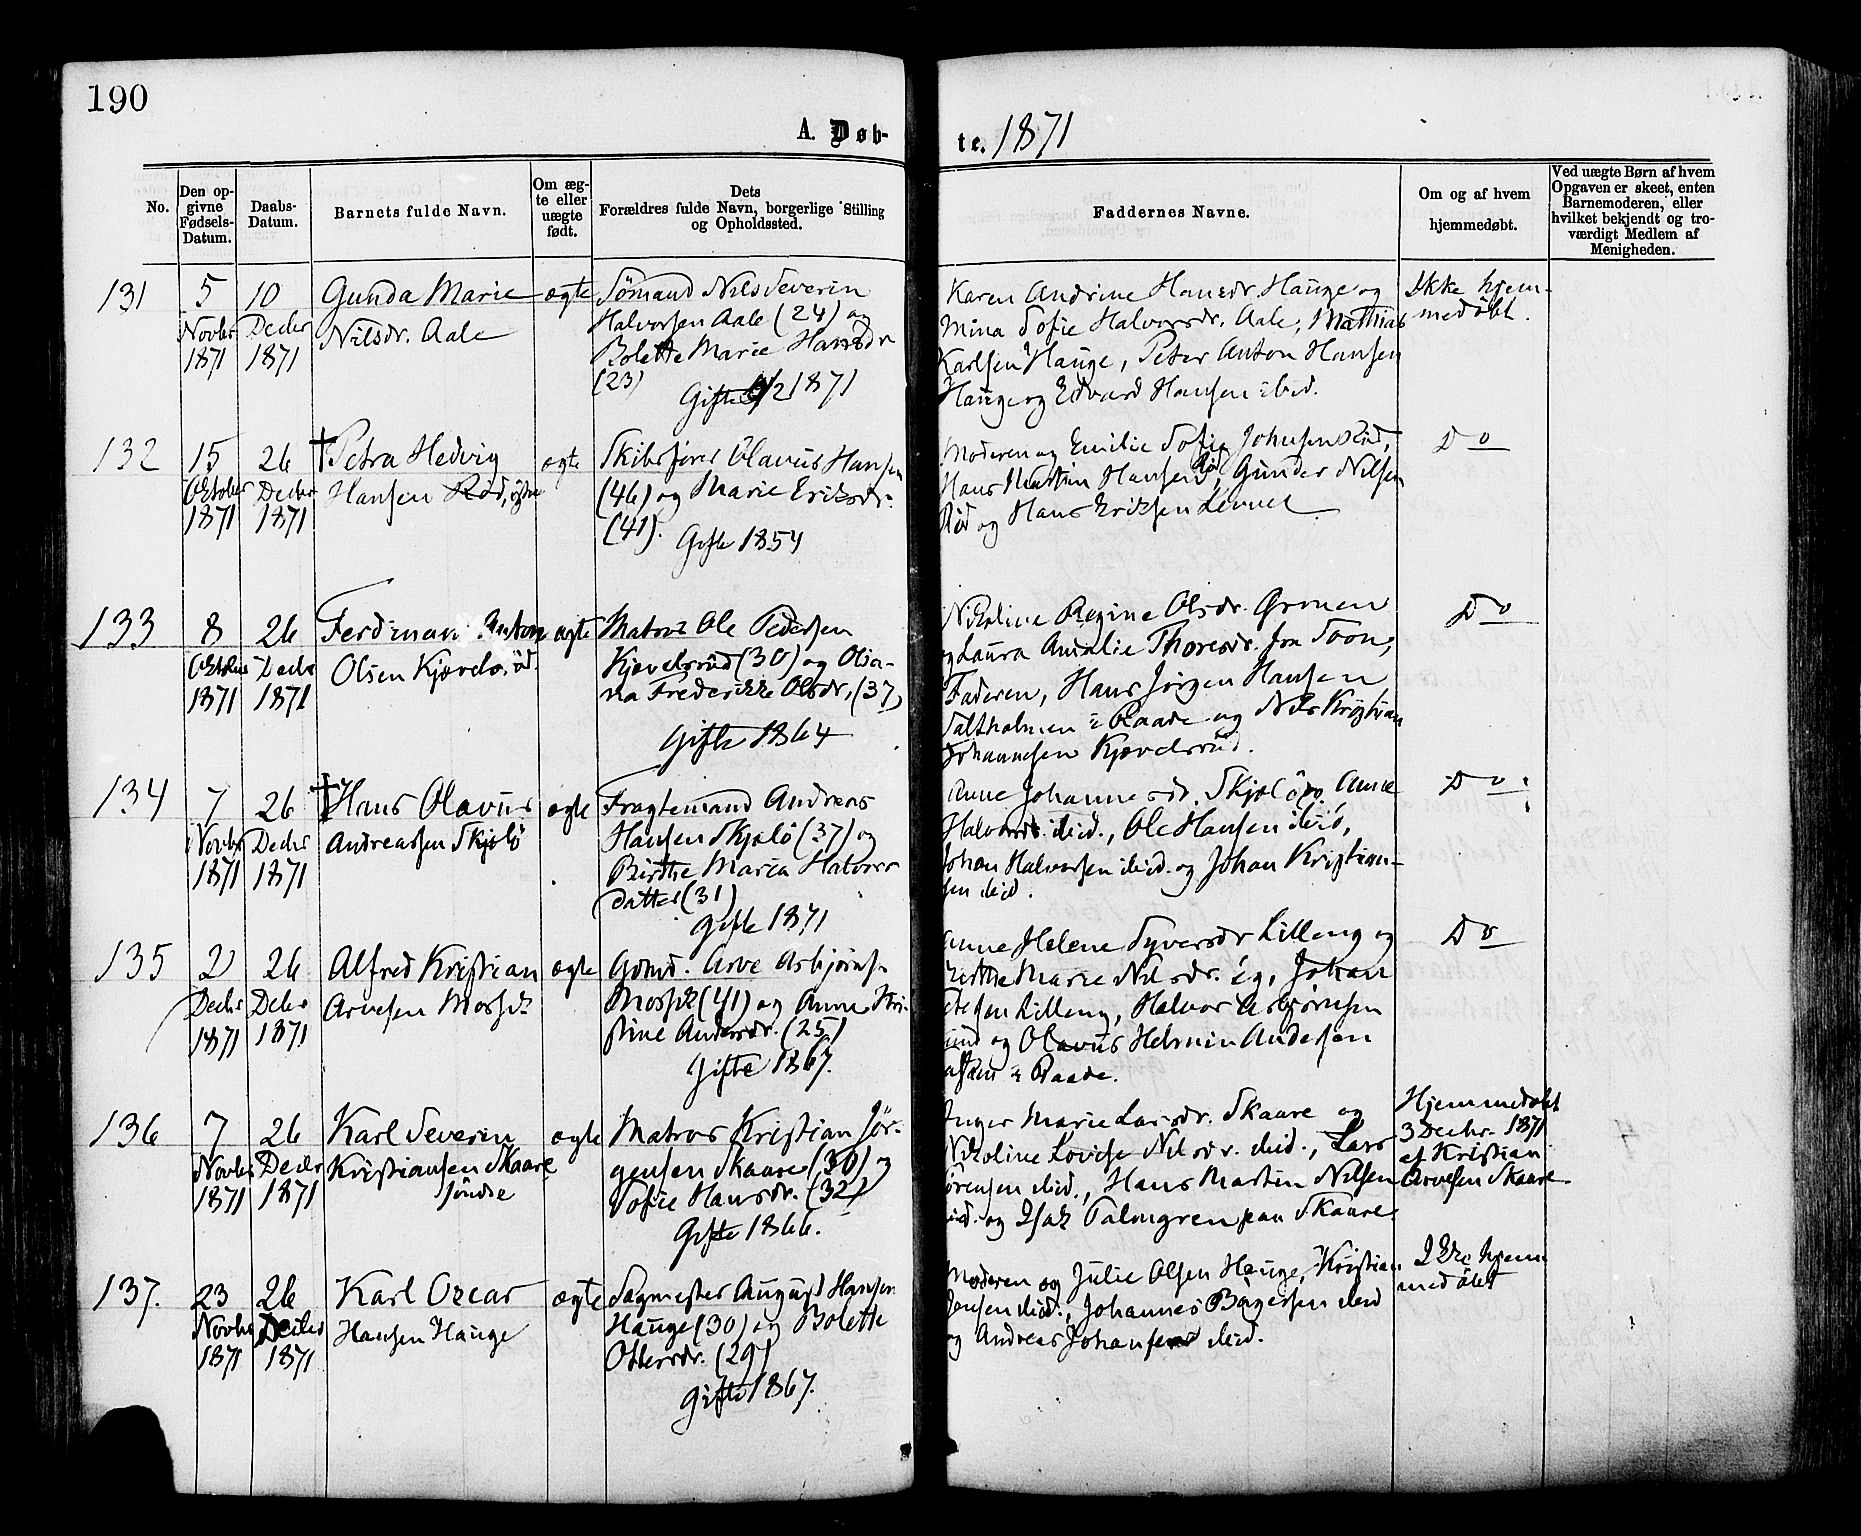 190
A. Døb-
te. 1871
No.
Den op-
givne
Fødsels-
Datum.
Daabs-
Datum.
Barnets fulde Navn.
Om æg-
te eller
uægte
født.
Dets
Forældres fulde Navn, borgerlige Stilling
og Opholdssted.
Faddernes Navne.
Om og af hvem
hjemmedøbt.
Ved uægte Børn af hvem
Opgaven er skeet, enten
Barnemoderen, eller
hvilket bekjendt og tro-
værdigt Medlem af
Menigheden.
131
5
Novbr
1871
10
Decbr
1871
Gunda Marie
Nilsdr. Aale
ægte
Sømand Nils Severin
Halvorsen Aale (24) og
Bolette Marie Hansdr
(23)
Gifte 1871
Karen Andrine Hansdr. Hauge og
Mina Sofie Halvorsdr. Aale, Mathias
Karlsen Hauge, Peter Anton Hansen
Hauge og Edvard Hansen ibid.
Ikke hjem-
medøbt.
132
15
Oktober
1871
26
Decbr
1871
† Petra Hedvig
Hansen Rød,
ægte
Skibsfører Olavus Hansen
(46) og Marie Eriksdr.
(41).
Gifte 1854
Moderen og Emilie Sofie Johnsen Rød,
Hans Martin Hansen Rød, Gunder Nilsen
Rød og Hans Eriksen
Do
133
8
Oktober
1871
26
Decbr
1871
Ferdinan Anton
Olsen Kjævelsrüd.
ægte
Matros Ole Pedersen
Kjævelsrüd (30) og Olia-
na Frederikke Olsdr. (37)
Gifte 1864
Nikoline Regine Olsdr. Grønen
og Laura Amalie Thoresdr. fra Soon,
Faderen, Hans Jørgen Hansen
Saltholmen i Raade og Nils Kristian
Johannesen Kjævelsrüd.
Do
134
7
Novbr
1871
26
Decbr
1871
† Hans Olavüs
Andreassen Skjølø
ægte
Fragtemand Andreas
Hansen Skjølø (37) og
Birthe Maria Halvors
datter (31)
Gifte 1871
Anne Johannesdr. Skjølø, Anne
Halvorsdr. ibid., Ole Hansen ibid,
Johan Halvorsen ibid. og Johan Kristian-
sen ibid.
Do
135
2
Decbr
1871
26
Decbr
1871
Alfred Kristian
Arvesen
ægte
Gdmd. Arve Asbjørns.
(41) og Anne Kri-
stine Andersdr. (25)
Gifte 1867.
Anne Helene Syversdr Lilleng og
Marie Nilsdr. Johan
Lilleng, Halvor Asbjørnsen
og Olavüs Helmin Andersen
i Raade.
Do
136
7
Novbr
1871
26
Decbr
1871
Karl Severin
Kristiansen Skaare
søndre
ægte
Matros Kristian Jør-
gensen Skaare (30) og
Sofie Hansdr. (32)
Gifte 1866.
Inger Marie Larsdr. Skaare og
Nikoline Lovise Nilsdr. ibid., Lars
Sørensen ibid., Hans Martin Nilsen
ibid. og Isak Palmgren paa Skaare.
Hjemmedøbt
3 Decbr. 1871
af Kristian
Arvesen Skaare
137.
23
Novbr
1871
26
Decbr
1871
Karl Oscar
Hansen Hauge
ægte
Sagmester August Hansen
Hauge (30) og Bolette
Ottersdr. (29)
Gifte 1867.
Moderen og Julie Olsen Hauge, Kristian
Jensen ibid., Johannes Børgersen ibid
og Andreas Johansen ibid.
Ikke hjem
medøbt